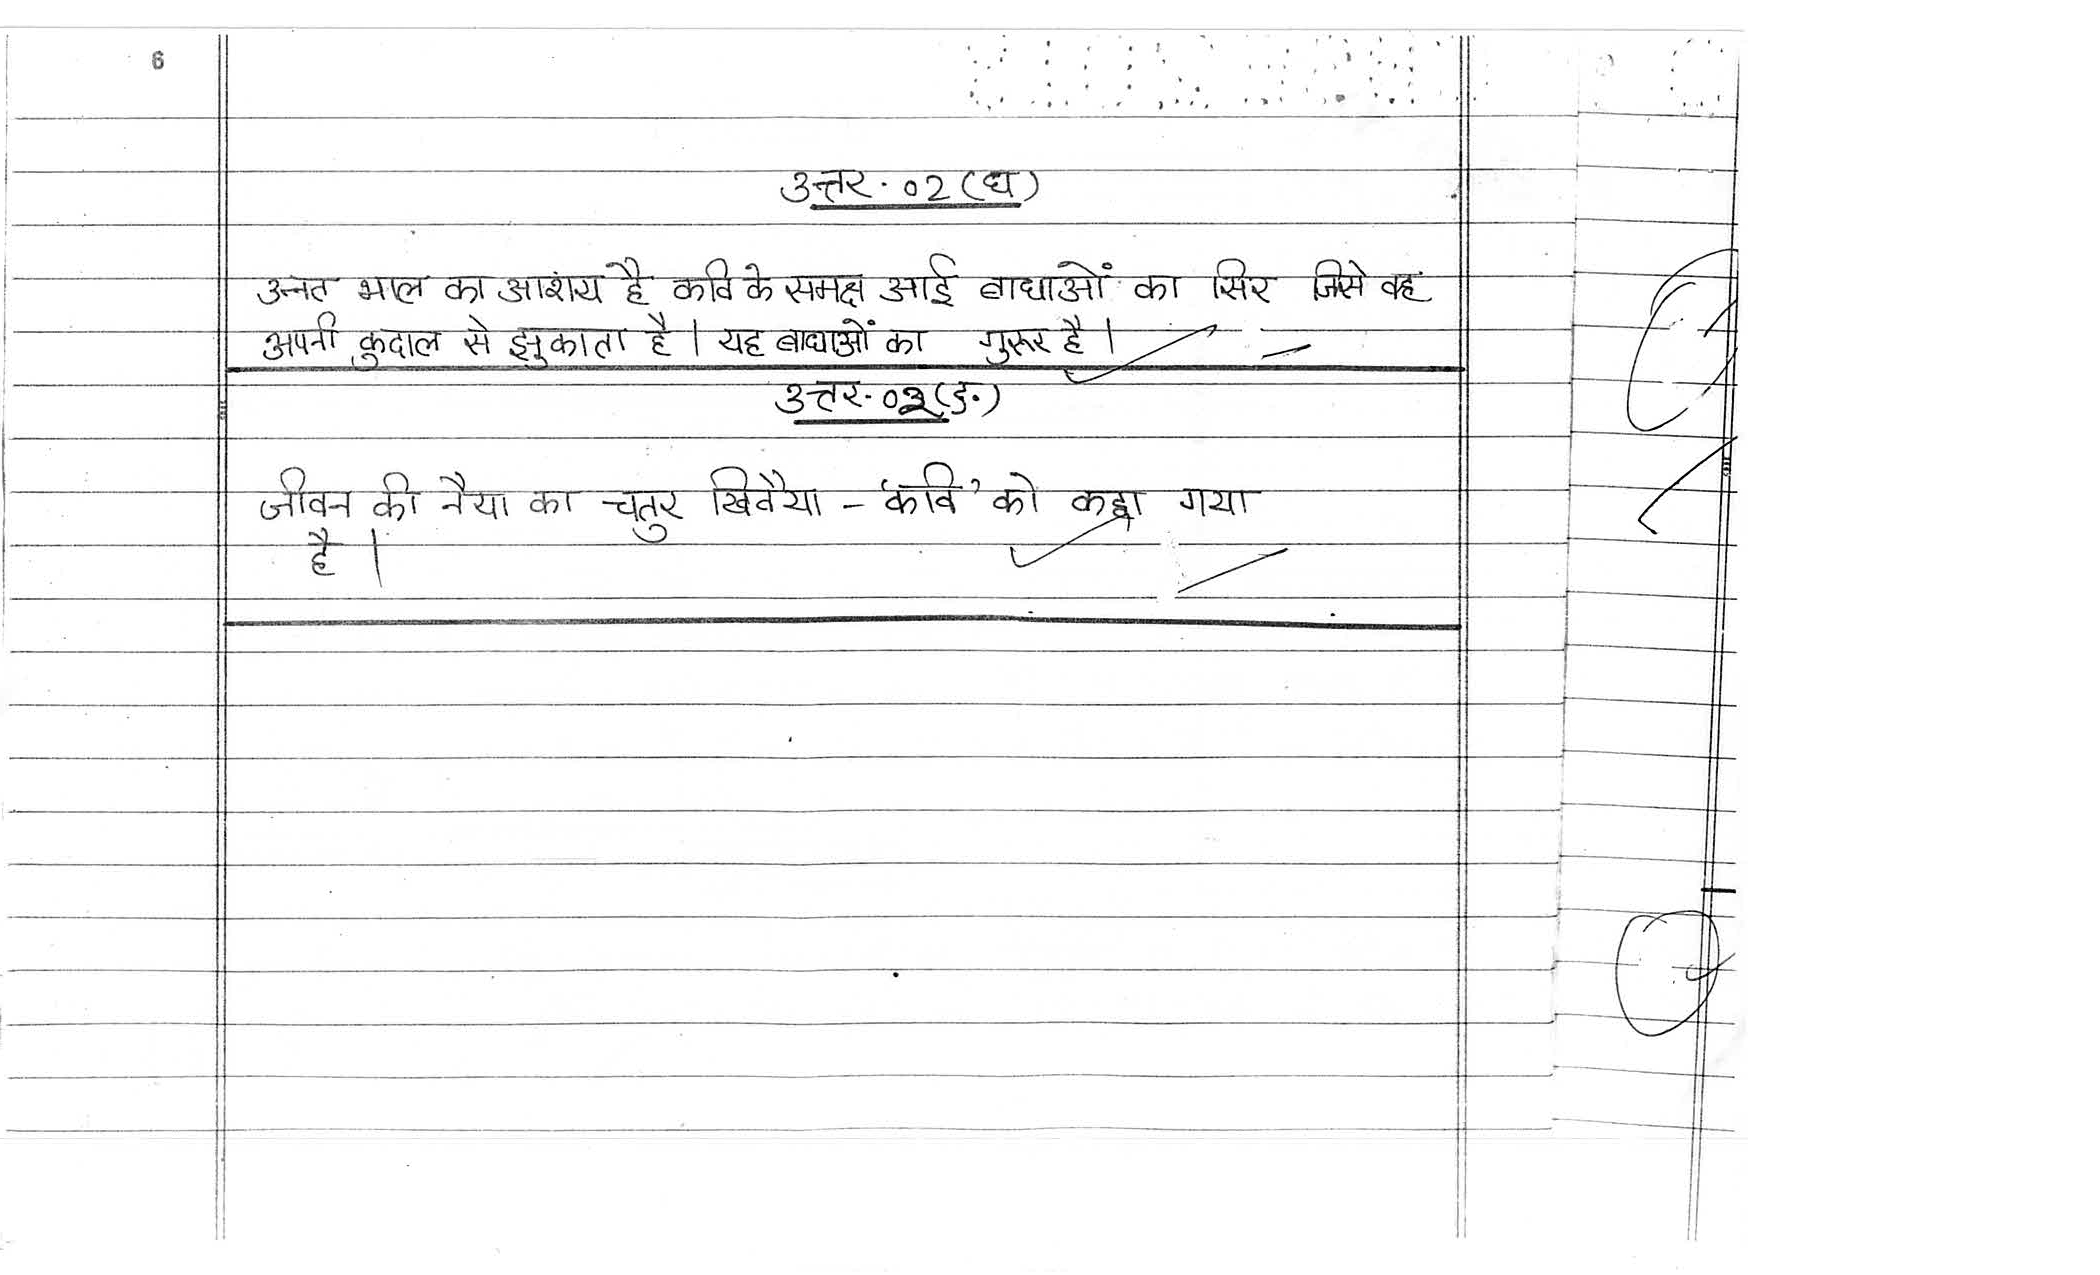 6
उत्तर. 02 (घ)
उन्नत भाल का आशय है कवि के समक्ष आई बाधाओं का सिर जिसे वह
अपनी कुदाल से झुकाता है। यह बाधाओं का गुरूर है।
उत्तर. 02 (ङ)
जीवन की नैया का चतुर खिवैया - 'कवि' को कहा गया
है।